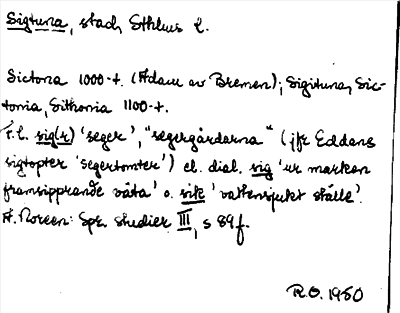 Sigtuna, stad, Sthlms l.
Sictona 1000-t. (Adam av Bremen); Sigituna, Sic-
tonia, Sithonia 1100-t.
F.l. sig(r) 'seger', "segergårdarna" (jfr Eddans
sigtopter 'segertomter') el. dial. sig 'ur marken
framsipprande väta' o. sik 'vattensjukt ställe'.
A. Noreen: Spr. studier III, s 89f.
R.O. 1950